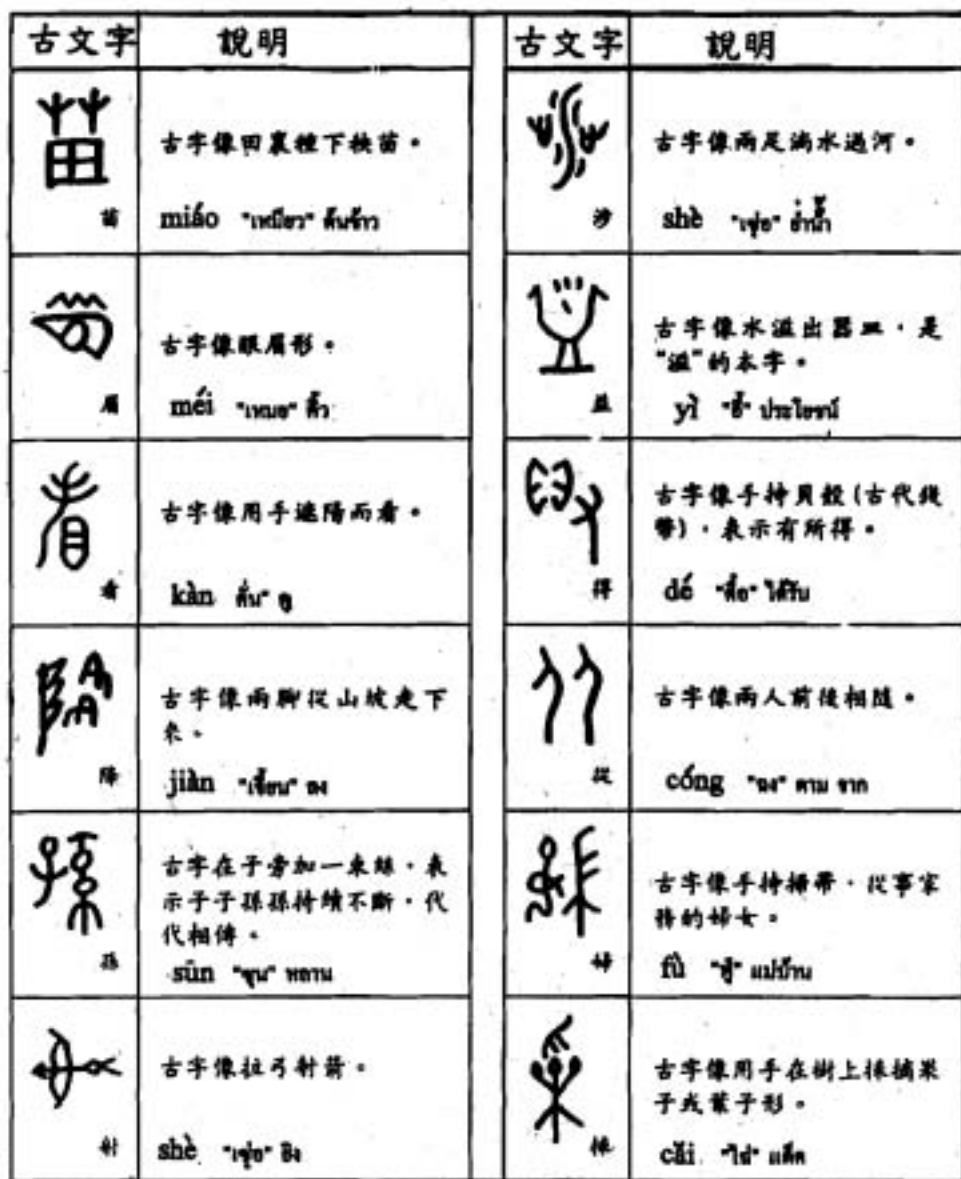 古文字 說明
苗
古字像田裏種下秧苗。
miáo "เหมียว" ต้นข้าว
眉
古字像眼眉形。
méi "เหมย" คิ้ว
看
古字像用手遮陽而看。
kàn คั่น" ดู
降
古字像兩腳從山坡走下
來。
jiàn "เจี้ยน" ลง
孫
古字在子旁加一束絲，表
示子子孫孫持續不斷，代
代相傳。
sūn "ซุน" หลาน
射
古字像拉弓射箭。
shè "เซ่อ" ยิง
古文字 說明
涉
古字像兩足淌水過河。
shè "เซ่อ" ย่ำน้ำ
益
古字像水溢出器皿，是
"溢"的本字。
yì "อี้" ประโยชน์
得
古字像手持貝殼(古代錢
幣)，表示有所得。
dé "เต๋อ" ได้รับ
從
古字像兩人前後相隨。
cóng "ฉง" ตาม จาก
婦
古字像手持掃帚，從事家
務的婦女。
fù "ฟู่" แม่บ้าน
採
古字像用手在樹上採摘果
子或葉子形。
cǎi "ไช่" เด็ด